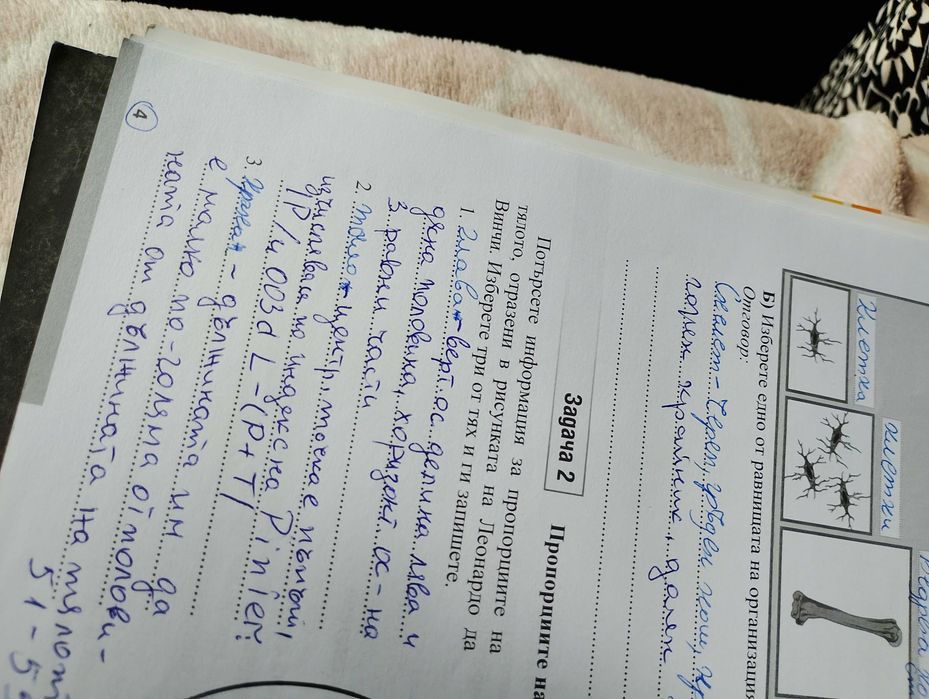 клетка
клетки
Б) Изберете едно от равнищата на организация
Отговор:
Скелет – череп, гръден кош,
горен крайник, долен
Задача 2 Пропорциите на
Потърсете информация за пропорциите на
тялото, отразени в рисунката на Леонардо да
Винчи. Изберете три от тях и ги запишете.
1. глава – верт. ос дели на лява и
дясна половина, хоризонт ос – на
3 равни части
2. тяло – центр. точка е пъпът,
изчислява по индекса на Pinien:
IP/4 003d L – (P + T)
3. крака – дължината им да
е малко по-голяма от полови-
ната от дължината на тялото
51 – 5
4